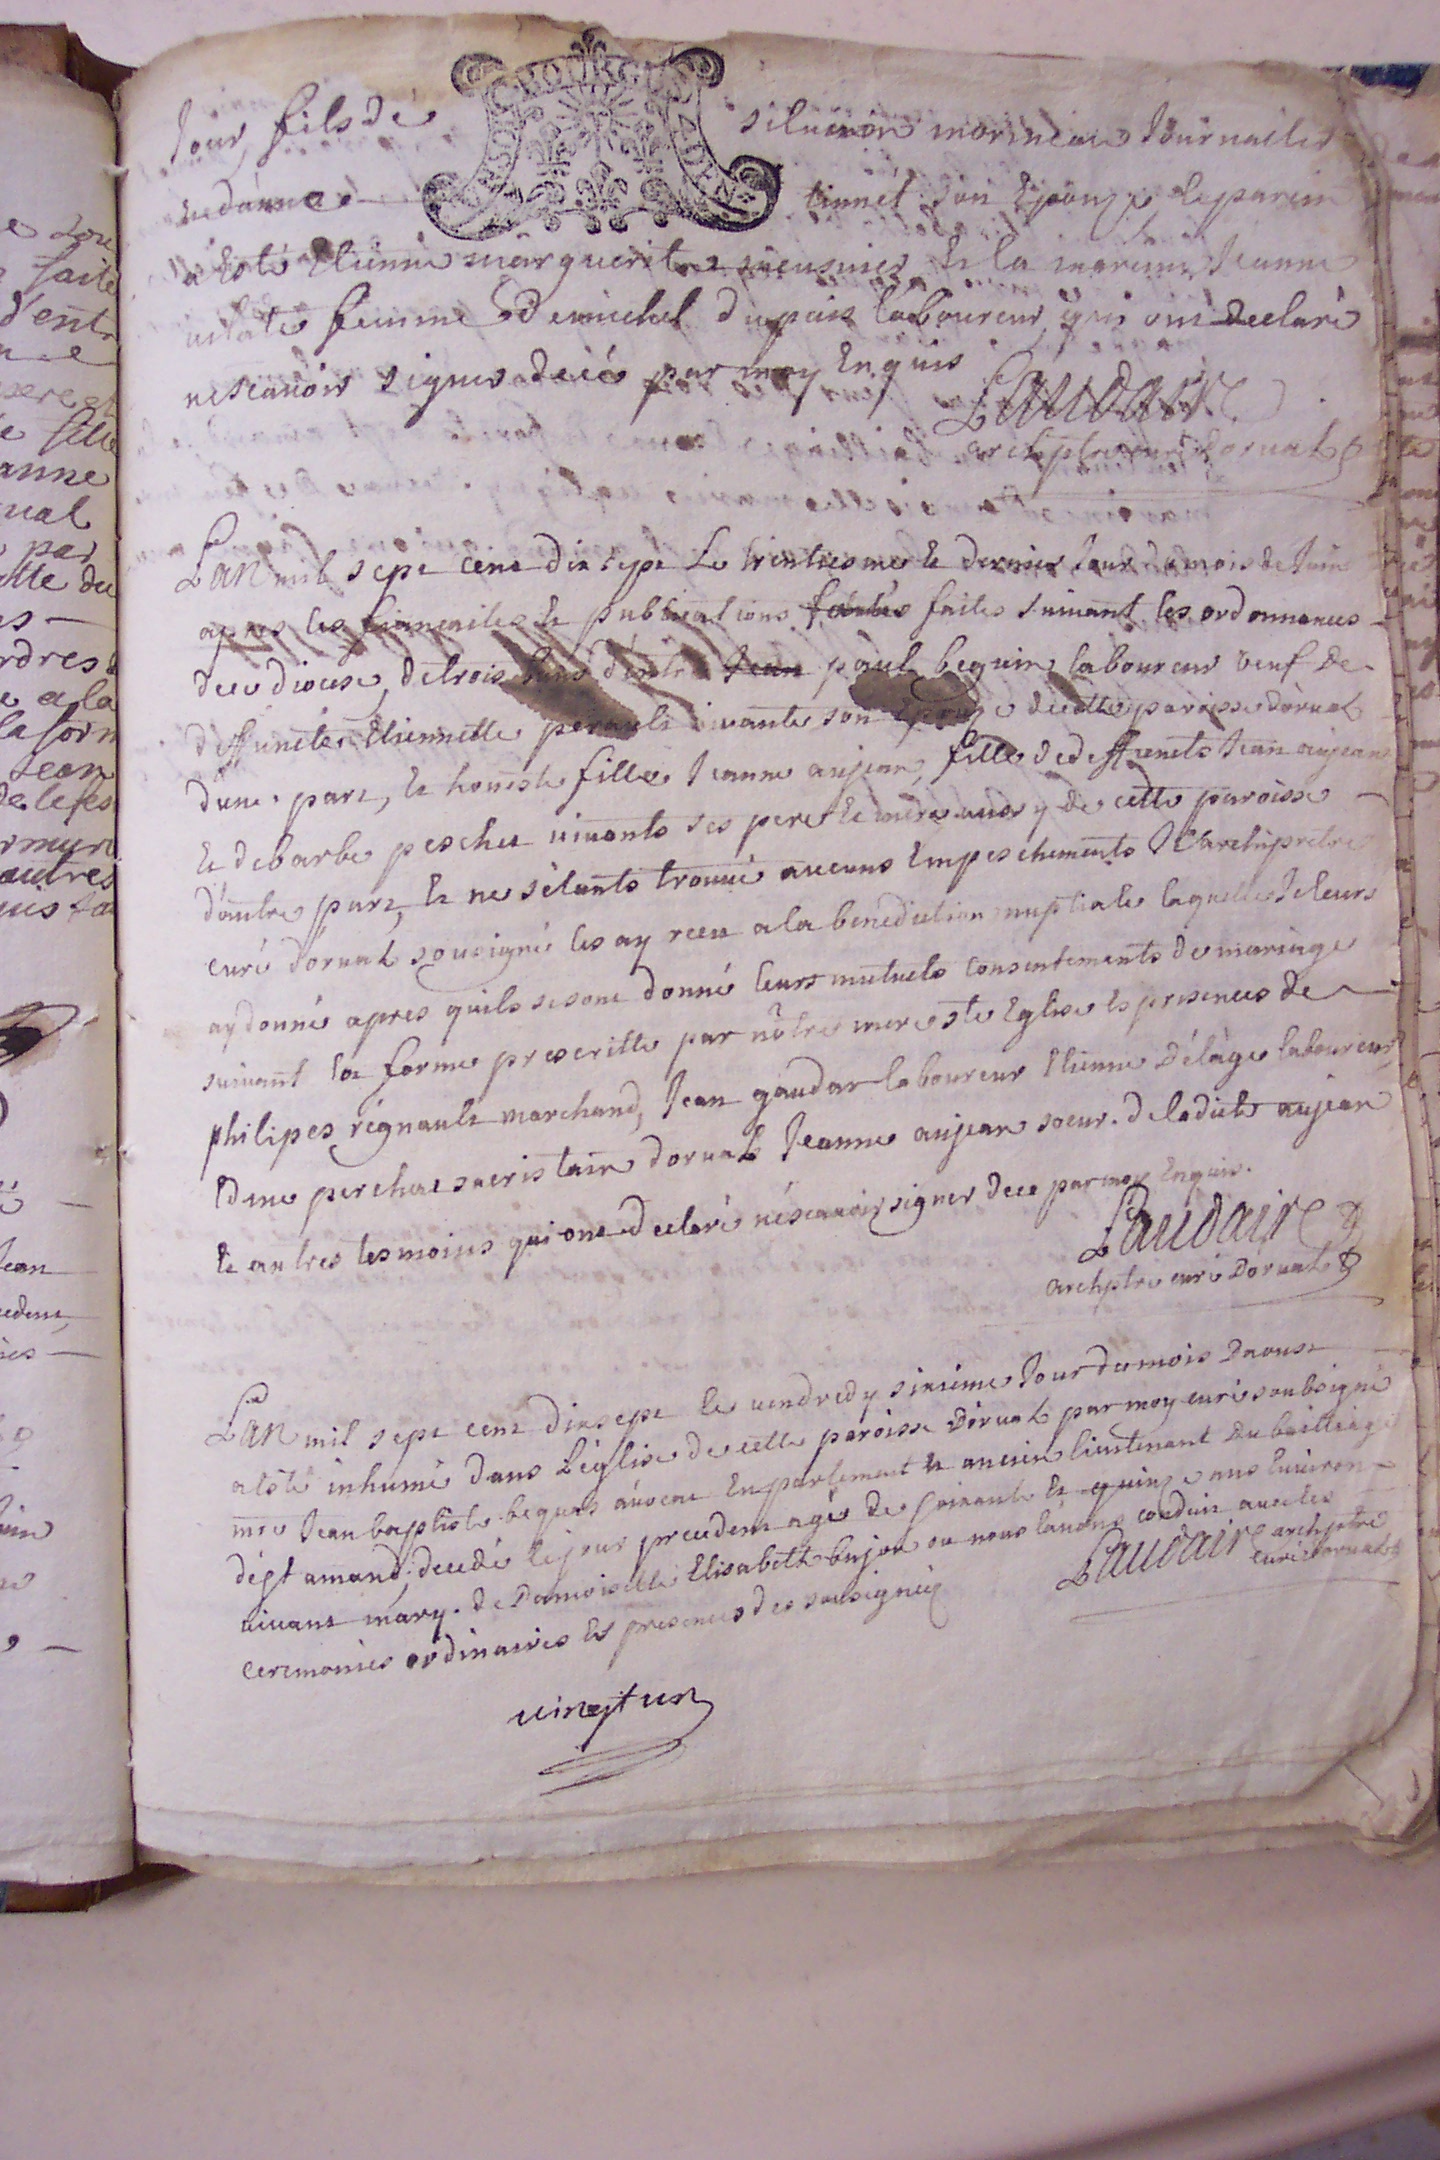 Jour fils de silvain morineau Journalier
et danne tinnet son Epouze, le parein
a esté Etienne marguerite meusnier Et la mareine Jeanne
femme de michel dupuis laboureur qui ont declaré
ne scauoir signer de ce par moy Enquis
Laudair
archptre curé dorual
Lan mil sept cent dix sept Le trentiesme et dernier Jour du mois de Juin
apres les fiançailles et publications faites faites suiuant les ordonnances
de ce diocese, de trois bans d'entre Jean paul beguin laboureur veuf de
deffuncte Etiennette perault viuante son Epouze de cette paroisse d'orual
d'une part, et honeste fille Jeanne aujean, fille de deffuncts Jean aujean
et de barbe peschet viuants ses pere et mere aussy de cette paroisse
d'autre part, et ne s'étants trouué aucuns Empeschements Je archiprêtre
curé dorual sousigné les ay receu a la benediction nuptiale laquelle Je leurs
ay donné apres quils se sont donné leurs mutuels consentements de mariage
suiuant la forme prescritte par nôtre mere ste Eglise Es presences de
philipes régnault marchand, Jean gaudar laboureur Etienne Délàge laboureur
Edme perchat sacristain dorual Jeanne aujean soeur de ladicte aujean
et autres tesmoins qui ont declaré ne scauoir signer de ce par moy Enquis.
Laudair
archptre curé D'orual
Lan mil sept cent dix sept le vendredy sixieme Jour du mois Daoust
a esté inhumé dans L'église de cette paroisse Dórual par moy curé soubsigné
mre Jean baptiste bequas auocat En parlement et ancien lieutenant Du bailliage
de st amand, decedé le jour precedent agé de soixante et quinze ans Enuiron
viuant mary de Damoiselle Elisabeth bujon ou nous l'auons conduit auec les
ceremonies ordinaires Es presences des sousignéz
Laudair archptre
curé dorual
uingt un